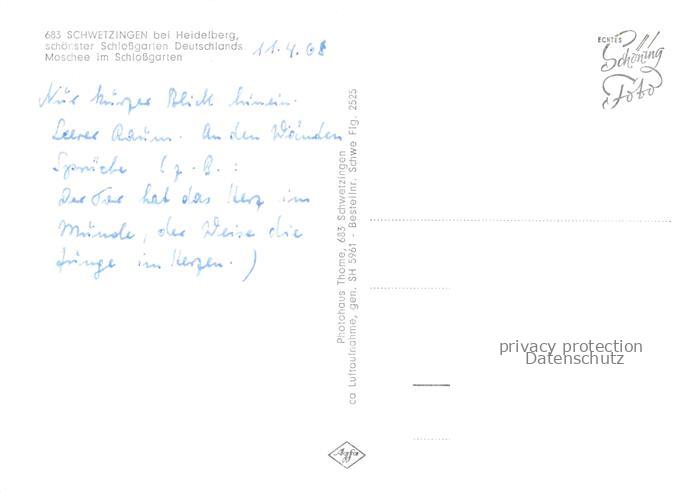 683 SCHWETZINGEN bei Heidelberg,
schönster Schloßgarten Deutschlands
Moschee im Schloßgarten
11.4.68
Nur kurzer Blick hinein.
Leerer Raum. An den Wänden
Sprüche (z.B.:
Der Tor hat das Herz im
Munde, der Weise die
Zunge im Herzen.)
Photohaus Thome, 683 Schwetzingen
ca Luftaufnahme, gen. SH 5961 - Bestellnr. Schwe Flg. 2525
ECHTES
Schöning
Foto
privacy protection
Datenschutz
Agfa